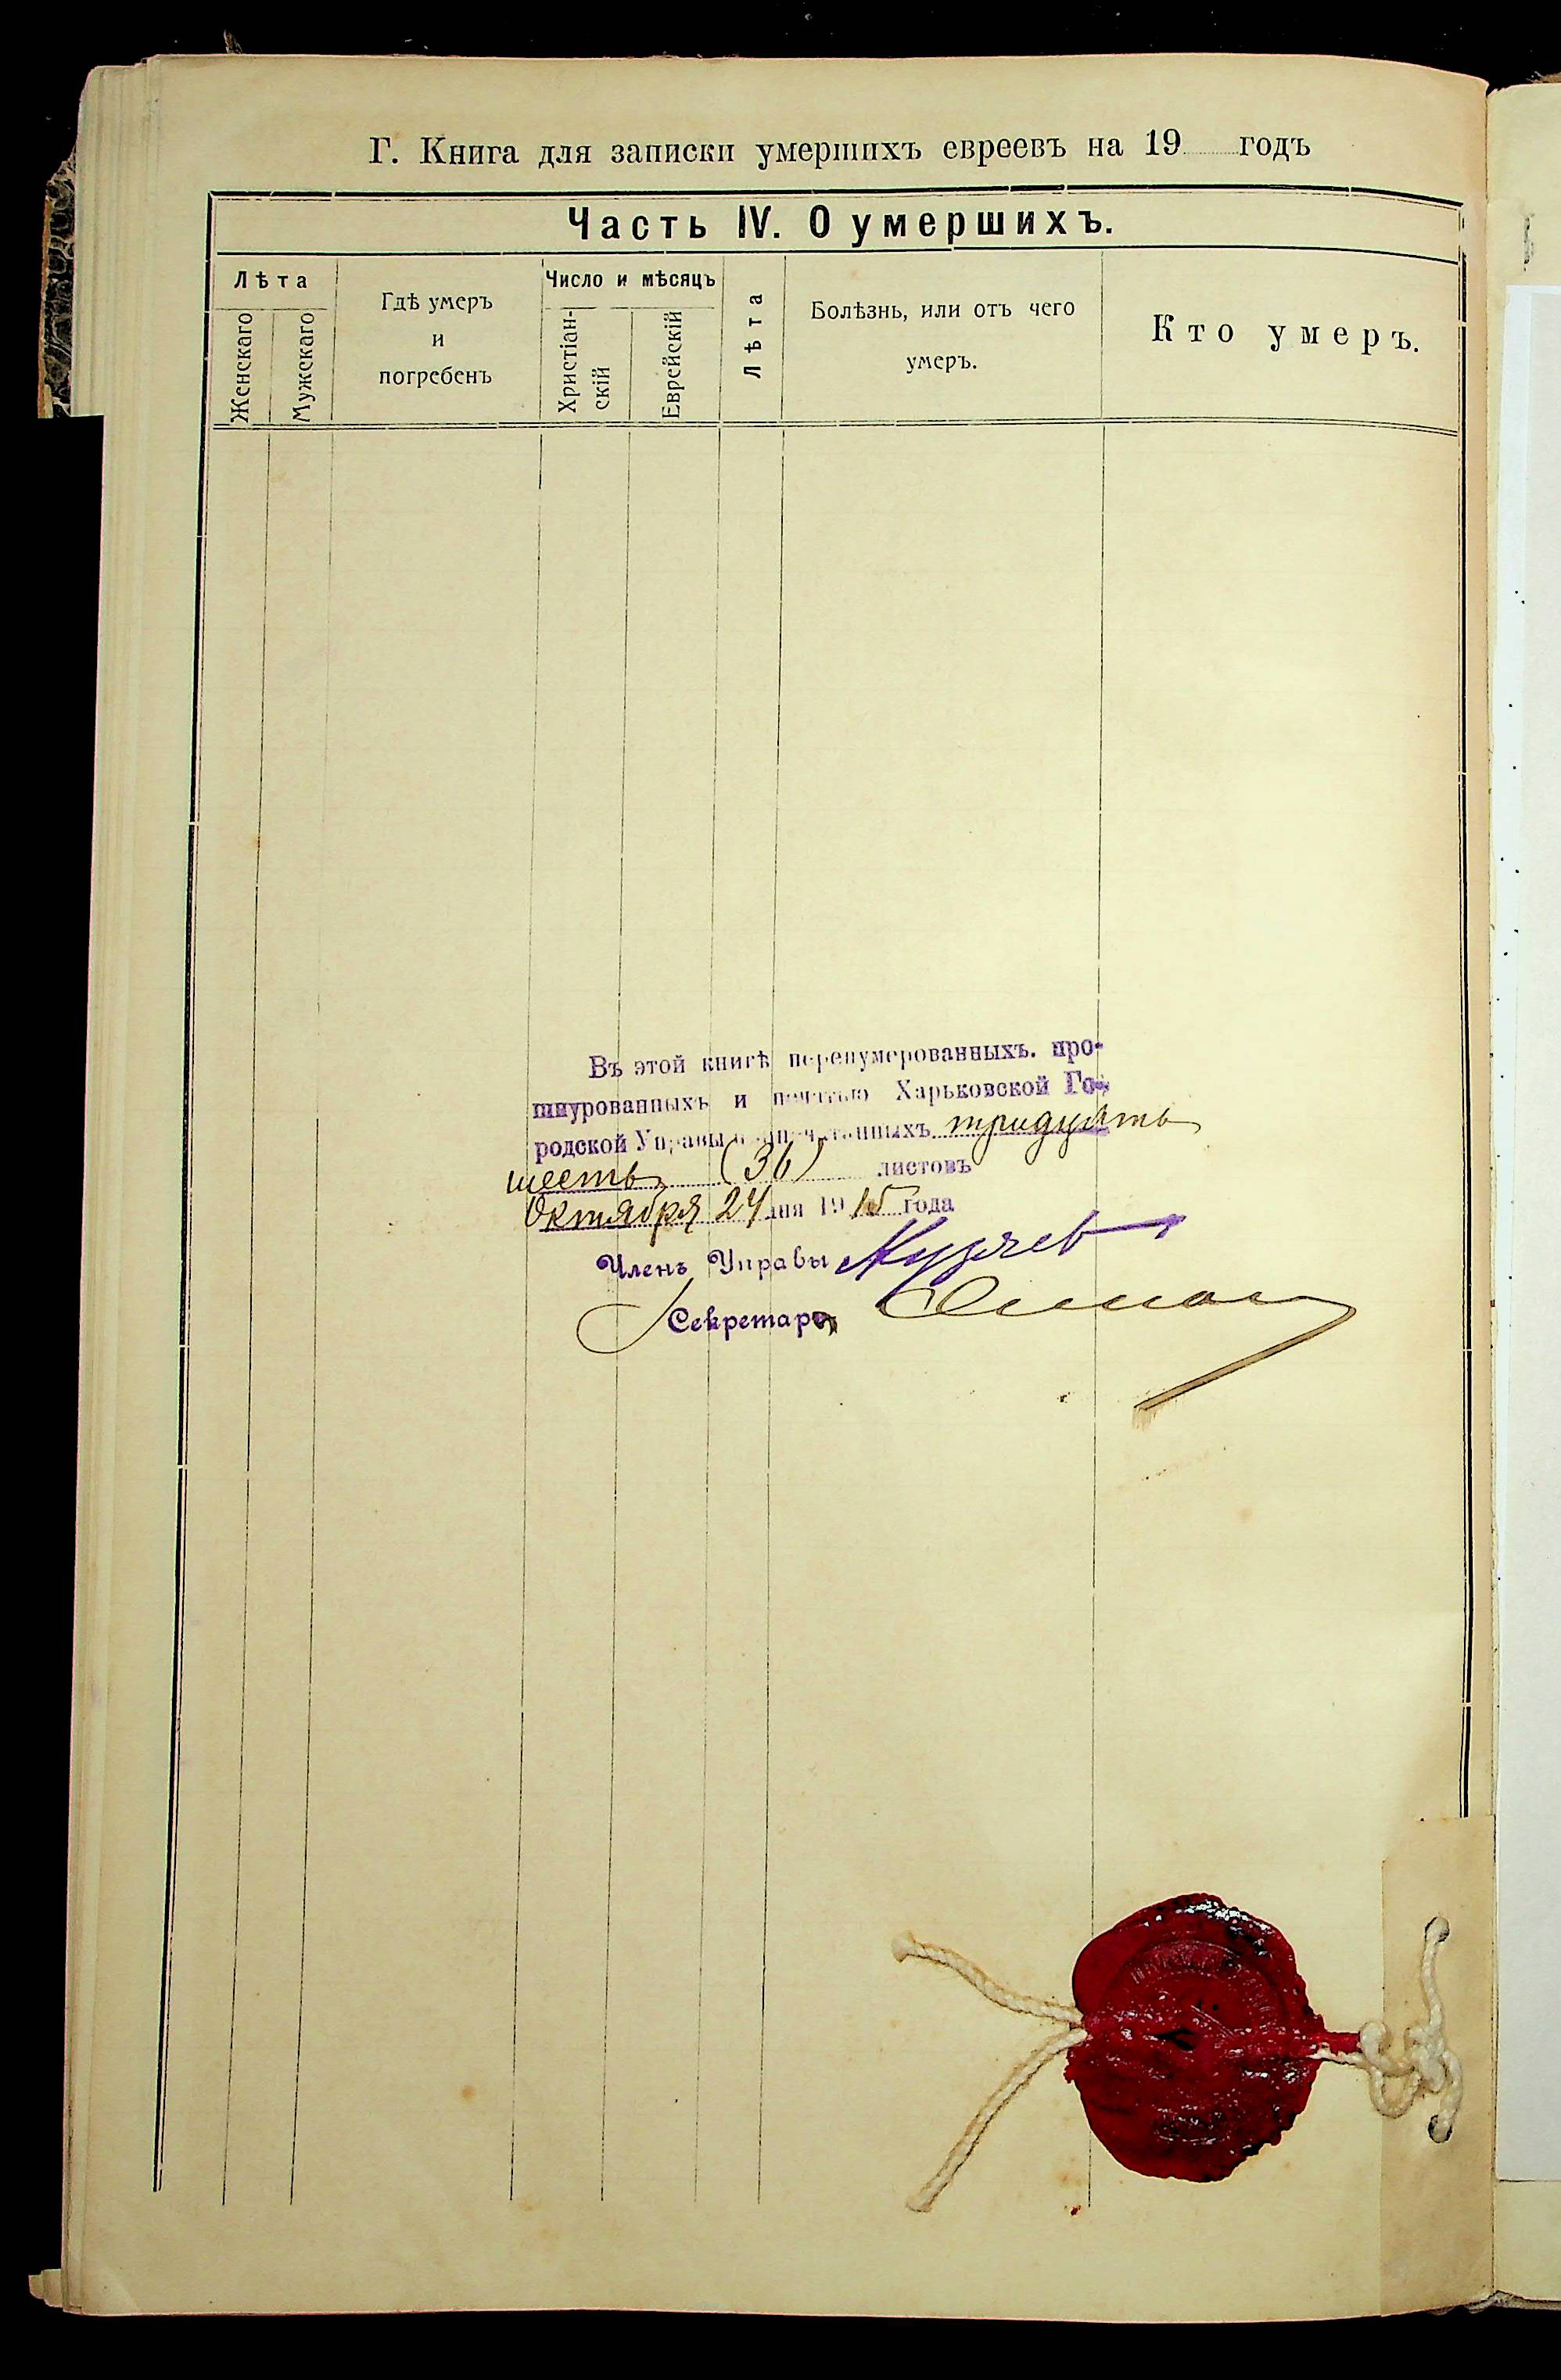 Г. Книга для записки умершихъ евреевъ на 19 годъ
Часть IV. О умершихъ.
Лѣта
Женскаго
Мужскаго
Гдѣ умеръ
и
погребенъ
Число и мѣсяцъ
Христіан-
скій
Еврейскій
Лѣта
Болѣзнь, или отъ чего
умеръ.
Кто умеръ.
Въ этой книгѣ перенумерованныхъ. про-
шнурованныхъ и печатью Харьковской Го-
родской Управы припечатанныхъ тридцать
шесть (36) листовъ
Октября 24 дня 1915 года
Членъ Управы
Секретарь